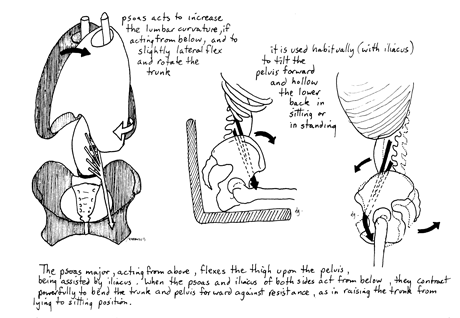 psoas acts to increase
the lumbar curvature, if
acting from below, and to
slightly lateral flex
and rotate the
trunk
it is used habitually (with iliacus)
to tilt the
pelvis forward
and hollow
the lower
back in
sitting or
in standing
The psoas major, acting from above, flexes the thigh upon the pelvis,
being assisted by iliacus. When the psoas and iliacus of both sides act from below, they contract
powerfully to bend the trunk and pelvis forward against resistance, as in raising the trunk from
lying to sitting position.